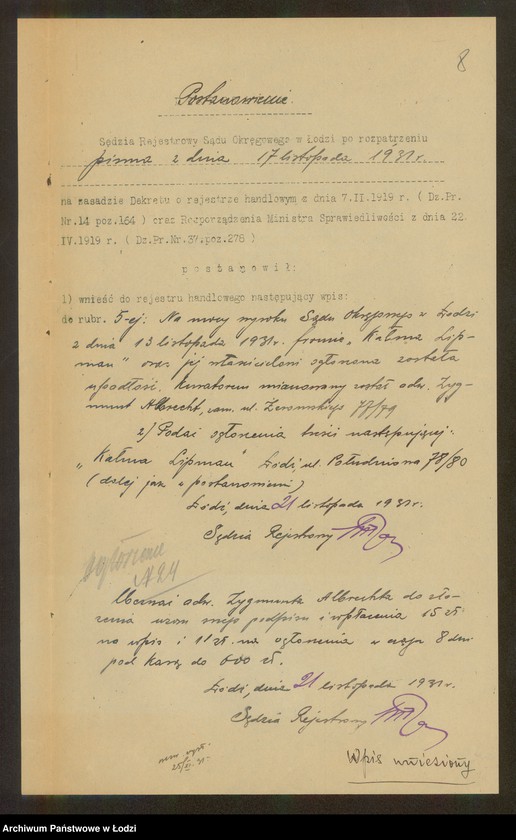 8
Postanowienie.
Sędzia Rejestrowy Sądu Okręgowego w Łodzi po rozpatrzeniu
pisma z dnia 17 listopada 1931 r.
na zasadzie Dekretu o rejestrze handlowym z dnia 7.II.1919 r ( Dz.Pr.
Nr.14 poz.164 ) oraz Rozporządzenia Ministra Sprawiedliwości z dnia 22
IV.1919 r ( Dz.Pr.Nr.37.poz.278 )
p o s t a n o w i ł :
1) wnieść do rejestru handlowego następujący wpis:
do rubr. 5-ej: Na mocy wyroku Sądu Okręgowego w Łodzi
z dnia 13 listopada 1931 r. firmie „Kałma Lip-
man" oraz jej właścicielowi ogłoszona została
upadłość. Kuratorem mianowany został adw. Zyg-
munt Albrecht, zam. ul. Żeromskiego 77/79
2) Podać ogłoszenia treści następującej:
„Kałma Lipman" Łódź, ul. Południowa 78/80
(dalej jak w postanowieniu)
Łódź, dnia 21 listopada 1931 r.
Sędzia Rejestrowy
ogłoszenie
N 24
Wezwać adw. Zygmunta Albrechta do zło-
żenia wzoru swego podpisu i wpłacenia 15 zł
na wpis i 11 zł. na ogłoszenia w ciągu 8 dni
pod karą do 600 zł.
Łódź, dnia 21 listopada 1931 r.
Sędzia Rejestrowy
Wpis uwieziony
Archiwum Państwowe w Łodzi